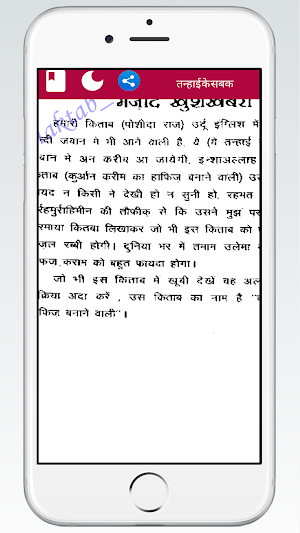 तन्हाईकेसबक
मज़ीद खुशखबरी
हमारी किताब (पोशीदा राज) उर्दू इंग्लिश में
न्दी जवान में भी आने वाली है, ये (ये तन्हाई
बान मे अन करीब आ जायेगी, इन्शाअल्लाह
ताब (कुर्आन करीम का हाफिज बनाने वाली) उ
यद न किसी ने देखी हो न सुनी हो, रहमत
र्रहमुर्राहिमीन की तौफीक से कि उसने मुझ पर
रमाया कितबा लिखाकर जो भी इस किताब को
ज़ल रब्बी होगी। दुनिया भर में तमाम उलेमा
फज़ कराम को बहुत फायदा होगा।
जो भी इस किताब मे खूबी देखें वह अल
क्रिया अदा करें , उस किताब का नाम है "
फिज़ बनाने वाली"।